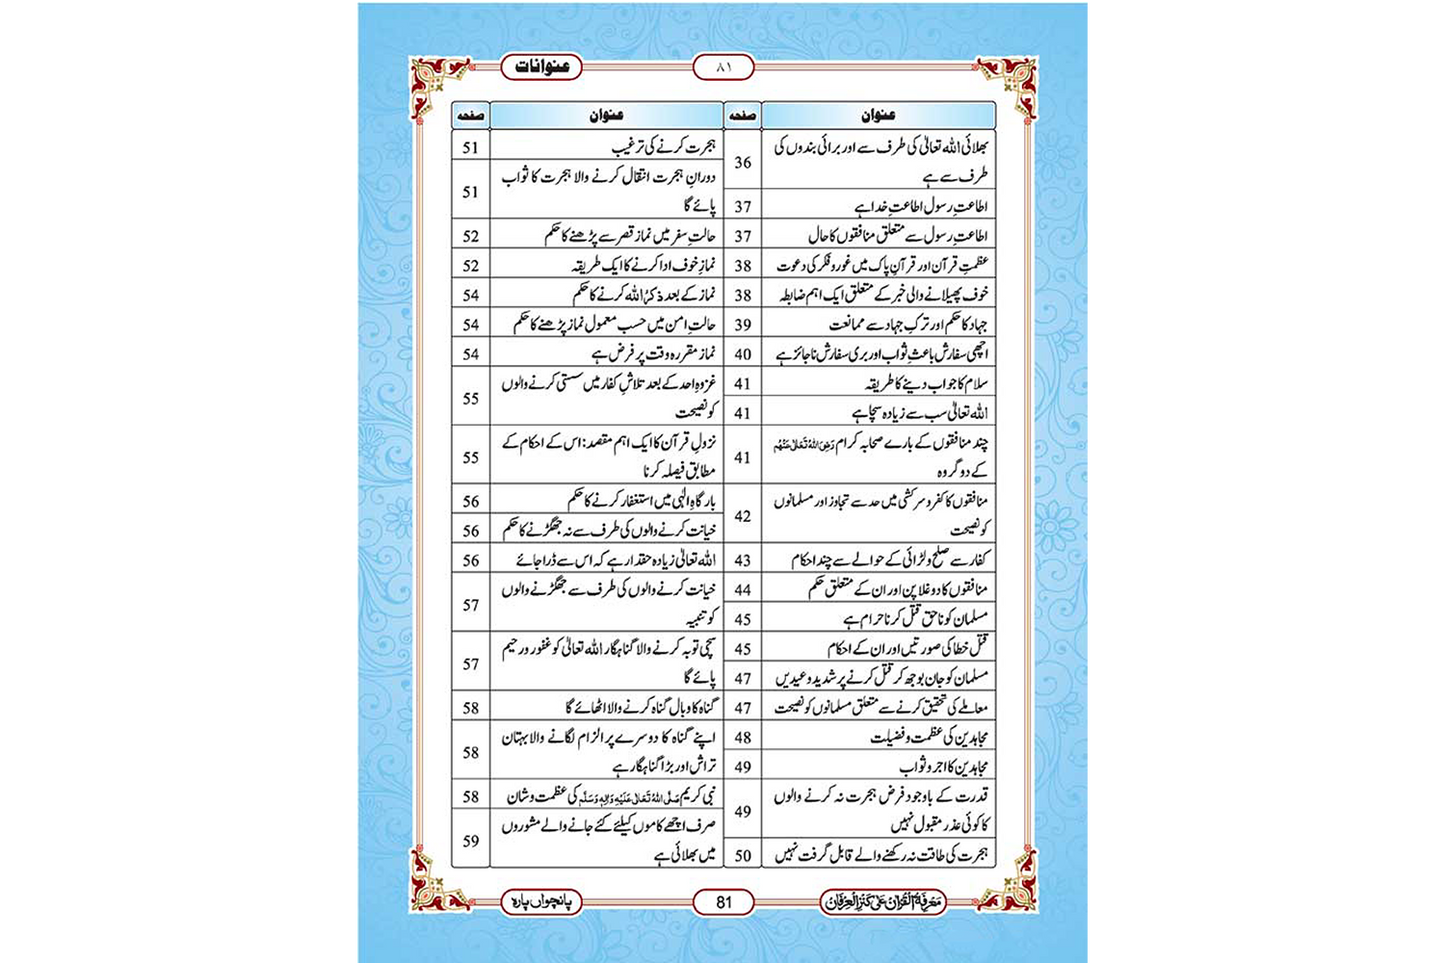 عنوانات
۸۱
عنوان
صفحہ
بھلائی اللہ تعالیٰ کی طرف سے اور برائی بندوں کی
طرف سے ہے
36
اطاعتِ رسول اطاعتِ خدا ہے
37
اطاعتِ رسول سے متعلق منافقوں کا حال
37
عظمتِ قرآن اور قرآنِ پاک میں غور و فکر کی دعوت
38
خوف پھیلانے والی خبر کے متعلق ایک اہم ضابطہ
38
جہاد کا حکم اور ترکِ جہاد سے ممانعت
39
اچھی سفارش باعثِ ثواب اور بری سفارش ناجائز ہے
40
سلام کا جواب دینے کا طریقہ
41
اللہ تعالیٰ سب سے زیادہ سچا ہے
41
چند منافقوں کے بارے صحابہ کرام رَضِیَ اللہُ تَعَالٰی عَنْہُم
کے دو گروہ
41
منافقوں کا کفر و سرکشی میں حد سے تجاوز اور مسلمانوں
کو نصیحت
42
کفار سے صلح و لڑائی کے حوالے سے چند احکام
43
منافقوں کا دوغلا پن اور ان کے متعلق حکم
44
مسلمان کو ناحق قتل کرنا حرام ہے
45
قتل خطا کی صورتیں اور ان کے احکام
45
مسلمان کو جان بوجھ کر قتل کرنے پر شدید وعیدیں
47
معاملے کی تحقیق کرنے سے متعلق مسلمانوں کو نصیحت
47
مجاہدین کی عظمت و فضیلت
48
مجاہدین کا اجر و ثواب
49
قدرت کے باوجود فرض ہجرت نہ کرنے والوں
کا کوئی عذر مقبول نہیں
49
ہجرت کی طاقت نہ رکھنے والے قابل گرفت نہیں
50
عنوان
صفحہ
ہجرت کرنے کی ترغیب
51
دورانِ ہجرت انتقال کرنے والا ہجرت کا ثواب
پائے گا
51
حالتِ سفر میں نماز قصر سے پڑھنے کا حکم
52
نمازِ خوف ادا کرنے کا ایک طریقہ
52
نماز کے بعد ذکرُ اللہ کرنے کا حکم
54
حالتِ امن میں حسب معمول نماز پڑھنے کا حکم
54
نماز مقررہ وقت پر فرض ہے
54
غزوہ احد کے بعد تلاشِ کفار میں سستی کرنے والوں
کو نصیحت
55
نزولِ قرآن کا ایک اہم مقصد: اس کے احکام کے
مطابق فیصلہ کرنا
55
بارگاہِ الٰہی میں استغفار کرنے کا حکم
56
خیانت کرنے والوں کی طرف سے نہ جھگڑنے کا حکم
56
اللہ تعالیٰ زیادہ حقدار ہے کہ اس سے ڈرا جائے
56
خیانت کرنے والوں کی طرف سے جھگڑنے والوں
کو تنبیہ
57
سچی توبہ کرنے والا گناہگار اللہ تعالیٰ کو غفور و رحیم
پائے گا
57
گناہ کا وبال گناہ کرنے والا اٹھائے گا
58
اپنے گناہ کا دوسرے پر الزام لگانے والا بہتان
تراش اور بڑا گناہگار ہے
58
نبی کریم صَلَّی اللہُ تَعَالٰی عَلَیْہِ وَاٰلِہٖ وَسَلَّم کی عظمت و شان
58
صرف اچھے کاموں کیلئے کئے جانے والے مشوروں
میں بھلائی ہے
59
مَعْرِفَۃُ الْقُرْاٰن عَلٰی کَنْزِ الْعِرْفَان
81
پانچواں پارہ